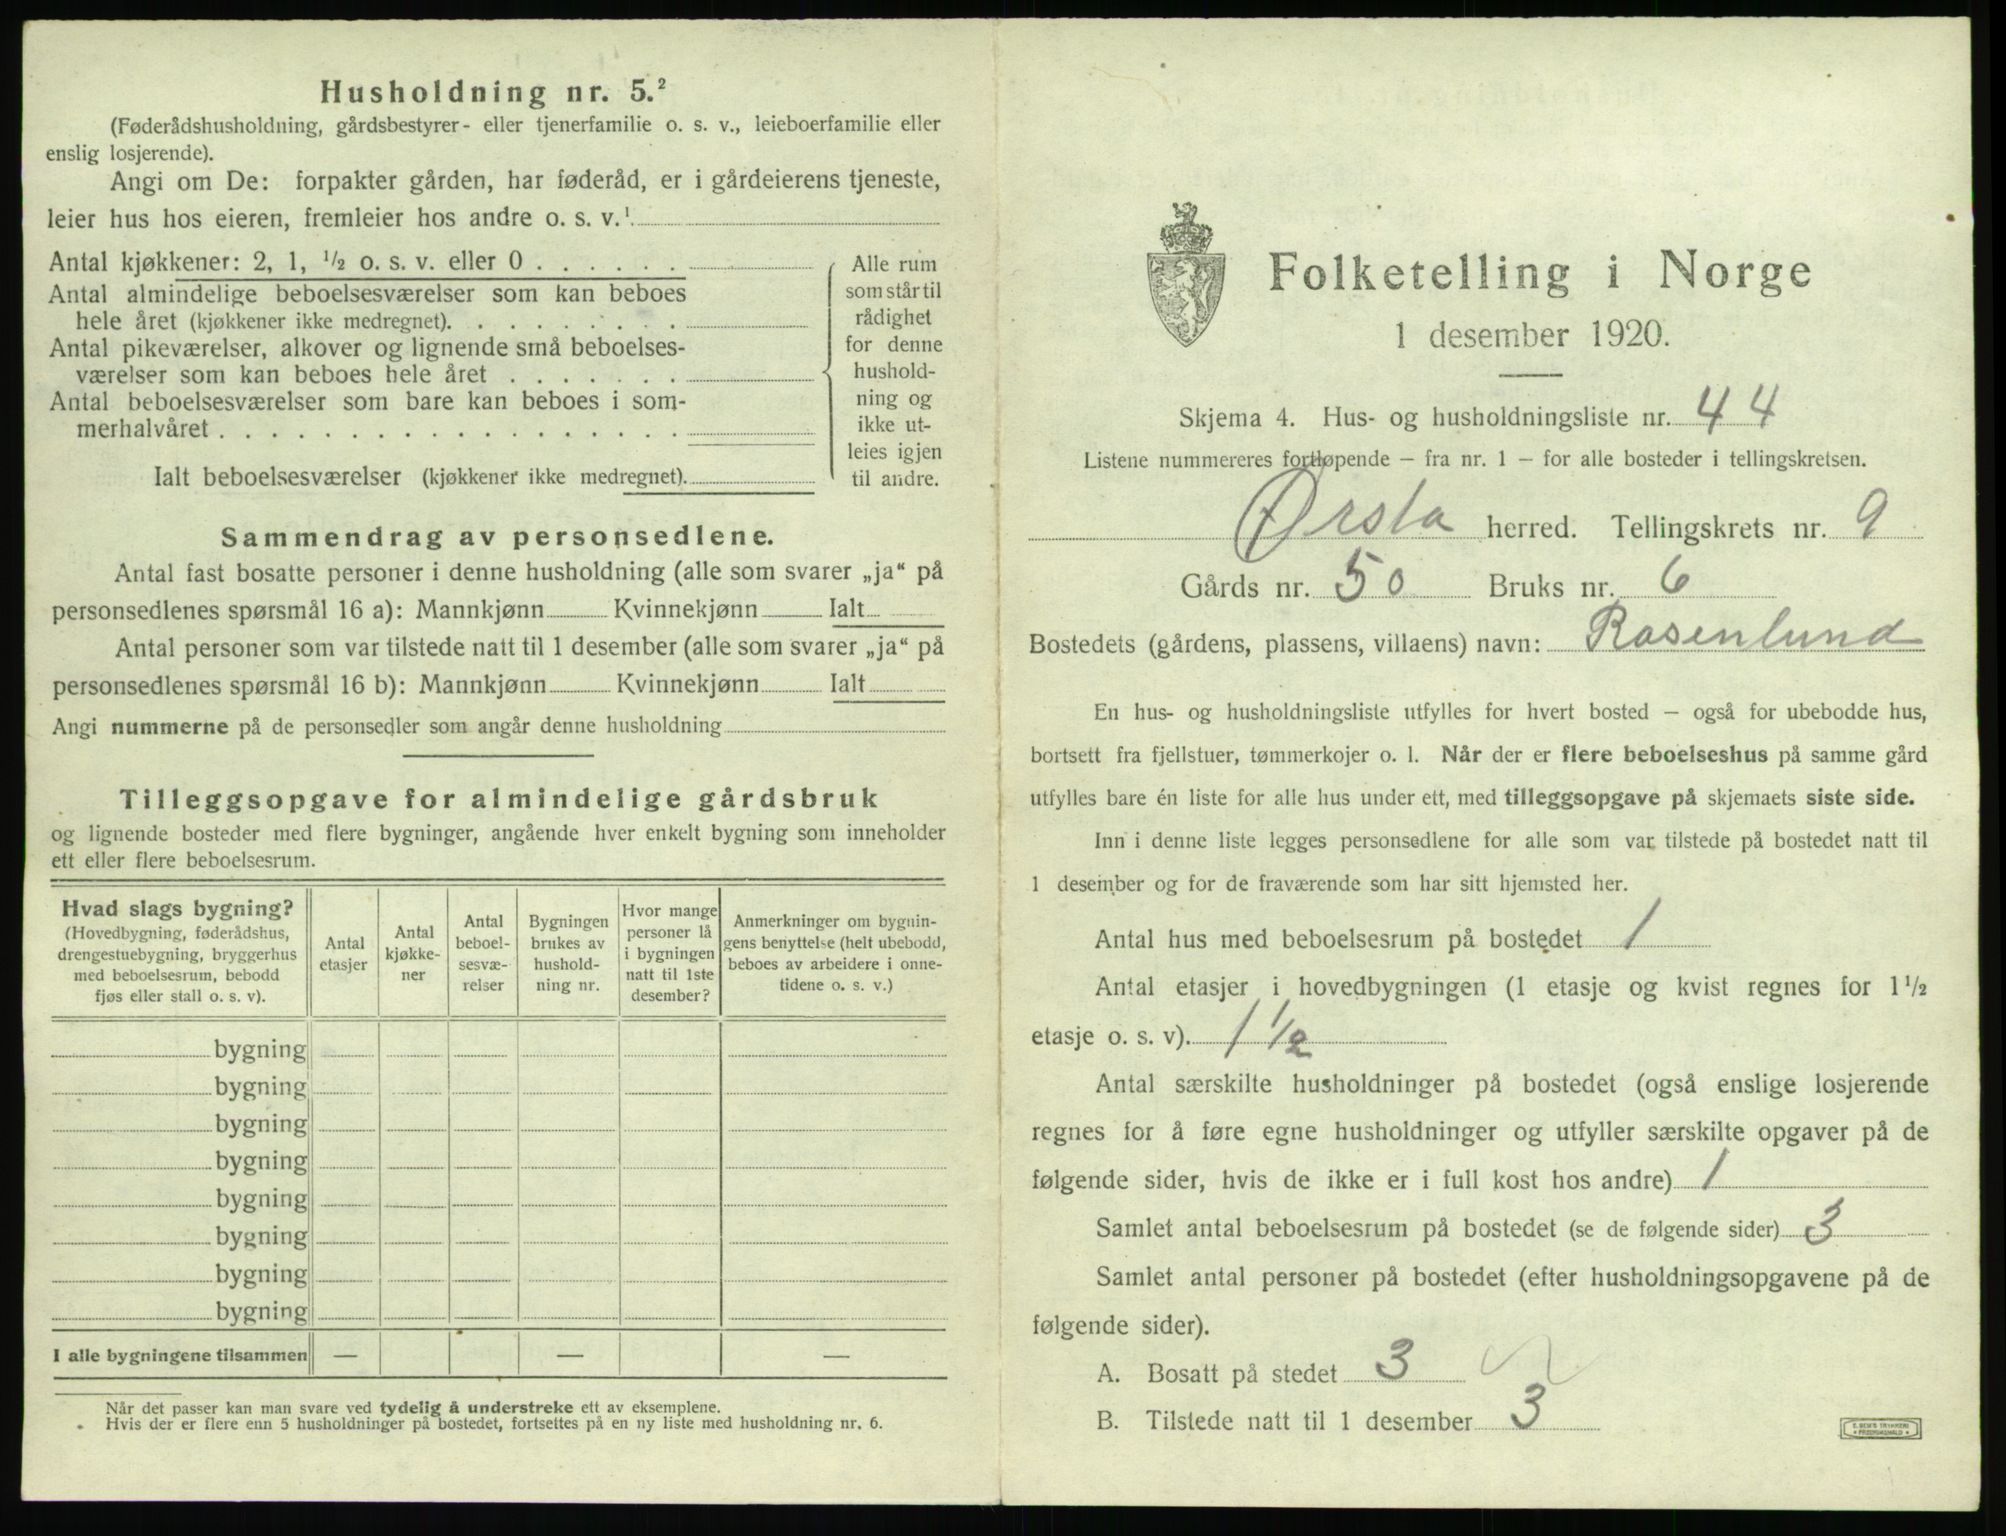 Husholdning nr. 5.²
(Føderådshusholdning, gårdsbestyrer- eller tjenerfamilie o. s. v., leieboerfamilie eller
enslig losjerende).
Angi om De: forpakter gården, har føderåd, er i gårdeierens tjeneste,
leier hus hos eieren, fremleier hos andre o. s. v.¹
Antal kjøkkener: 2, 1, ½ o. s. v. eller 0 . . . . . .
Antal almindelige beboelsesværelser som kan beboes
hele året (kjøkkener ikke medregnet). . . . . . . . .
Antal pikeværelser, alkover og lignende små beboelses-
værelser som kan beboes hele året . . . . . . .
Antal beboelsesværelser som bare kan beboes i som-
merhalvåret . . . . . . . . . . . . . . . . . .
Ialt beboelsesværelser (kjøkkener ikke medregnet).
Alle rum
som står til
rådighet
for denne
hushold-
ning og
ikke ut-
leies igjen
til andre.
Sammendrag av personsedlene.
Antal fast bosatte personer i denne husholdning (alle som svarer „ja“ på
personsedlenes spørsmål 16 a): Mannkjønn Kvinnekjønn Ialt
Antal personer som var tilstede natt til 1 desember (alle som svarer „ja“ på
personsedlenes spørsmål 16 b): Mannkjønn Kvinnekjønn Ialt
Angi nummerne på de personsedler som angår denne husholdning
Tilleggsopgave for almindelige gårdsbruk
og lignende bosteder med flere bygninger, angående hver enkelt bygning som inneholder
ett eller flere beboelsesrum.
Hvad slags bygning?
(Hovedbygning, føderådshus,
drengestuebygning, bryggerhus
med beboelsesrum, bebodd
fjøs eller stall o. s. v).
Antal
etasjer
Antal
kjøkke-
ner
Antal
beboel-
sesvæ-
relser
Bygningen
brukes av
hushold-
ning nr.
Hvor mange
personer lå
i bygningen
natt til 1ste
desember?
Anmerkninger om bygnin-
gens benyttelse (helt ubebodd,
beboes av arbeidere i onne-
tidene o. s. v.)
bygning
bygning
bygning
bygning
bygning
bygning
bygning
bygning
I alle bygningene tilsammen — — —
Når det passer kan man svare ved tydelig å understreke ett av eksemplene.
Hvis der er flere enn 5 husholdninger på bostedet, fortsettes på en ny liste med husholdning nr. 6.
Folketelling i Norge
1 desember 1920.
Skjema 4. Hus- og husholdningsliste nr. 44
Listene nummereres fortløpende — fra nr. 1 — for alle bosteder i tellingskretsen.
Ørsta herred. Tellingskrets nr. 9
Gårds nr. 50 Bruks nr. 6
Bostedets (gårdens, plassens, villaens) navn: Rosenlund
En hus- og husholdningsliste utfylles for hvert bosted — også for ubebodde hus,
bortsett fra fjellstuer, tømmerkojer o. l. Når der er flere beboelseshus på samme gård
utfylles bare én liste for alle hus under ett, med tilleggsopgave på skjemaets siste side.
Inn i denne liste legges personsedlene for alle som var tilstede på bostedet natt til
1 desember og for de fraværende som har sitt hjemsted her.
Antal hus med beboelsesrum på bostedet 1
Antal etasjer i hovedbygningen (1 etasje og kvist regnes for 1½
etasje o. s. v). 1½
Antal særskilte husholdninger på bostedet (også enslige losjerende
regnes for å føre egne husholdninger og utfyller særskilte opgaver på de
følgende sider, hvis de ikke er i full kost hos andre) 1
Samlet antal beboelsesrum på bostedet (se de følgende sider) 3
Samlet antal personer på bostedet (efter husholdningsopgavene på de
følgende sider).
A. Bosatt på stedet 3
B. Tilstede natt til 1 desember 3